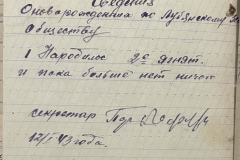 Сведения
О новорожденных по Лубянскому
обществу
1 Народилос 2е днят.
и пока больше нет ничого
секретар
17/I 43 года.